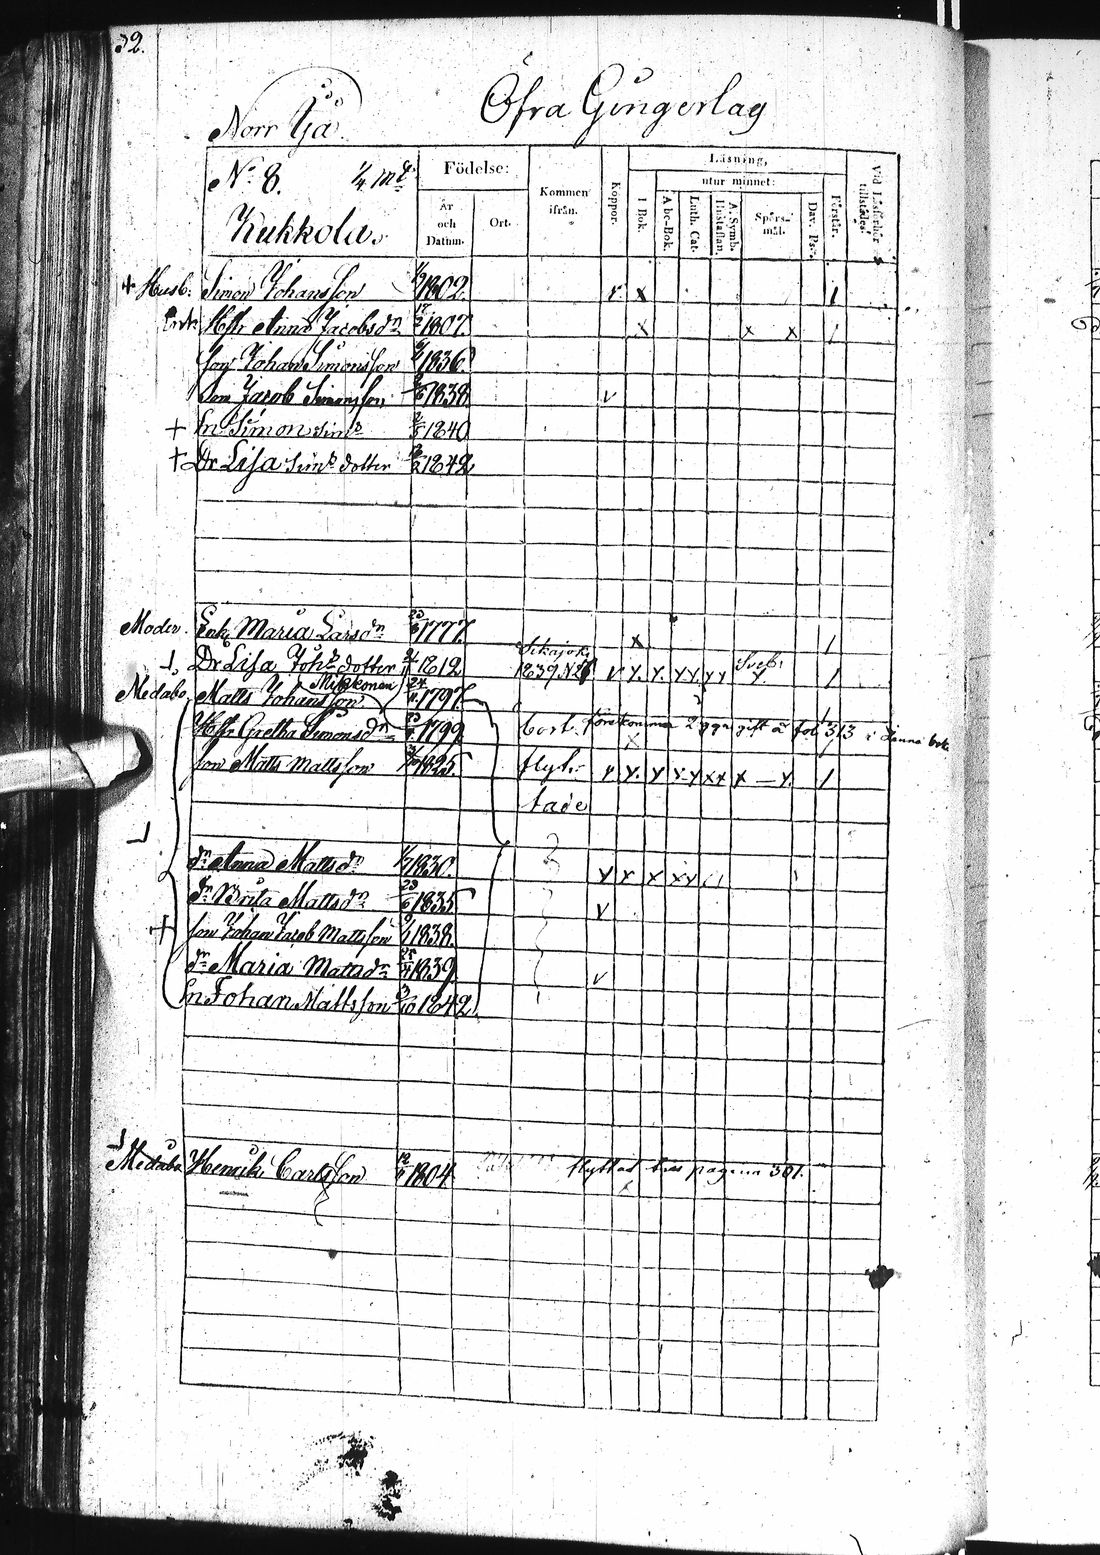 32.
Norr Ijå.
Öfra Gungerlag
No 8. 1/4 md
Kukkola.
Födelse:
År och Datum.
Ort.
Kommen ifrån.
Koppor.
Läsning,
I Bok.
utur minnet:
Abc-Bok.
Luth. Cat.
A. Symb. Hustaflan.
Spörs-mål.
Dav. Ps.
Förstår.
Vid Läsförhör tillstädes:
+ Husb. Simon Johansson 1802.
Enk Hstr Anna Jacobsdr 1807.
son Johan Simonsson 1836.
son Jacob Simonsson 1838
+ Sn Simon Sims 1840
+ Dr Lisa Sims dotter 1842
Moder. Enk. Maria Larsdr 1777.
Dr Lisa Johs dotter 1812 Sikajoki 1839 N
Medabo Matts Johansson 1797.
Hstr Gretha Simonsdr 1799 bort förekommer 2 ggr gift å fol 313 i denna bok
son Matts Mattsson 1825 flyt-
tade
dr Anna Mattsdr 1/7 1830.
dr Brita Mattsdr 1835
son Johan Jacob Mattsson 1838.
dr Maria Mattsdr 1839
Sn Johan Mattsson 3/10 1842.
Medabo Henrik Carlsson 1804 flyttad pagina 301.